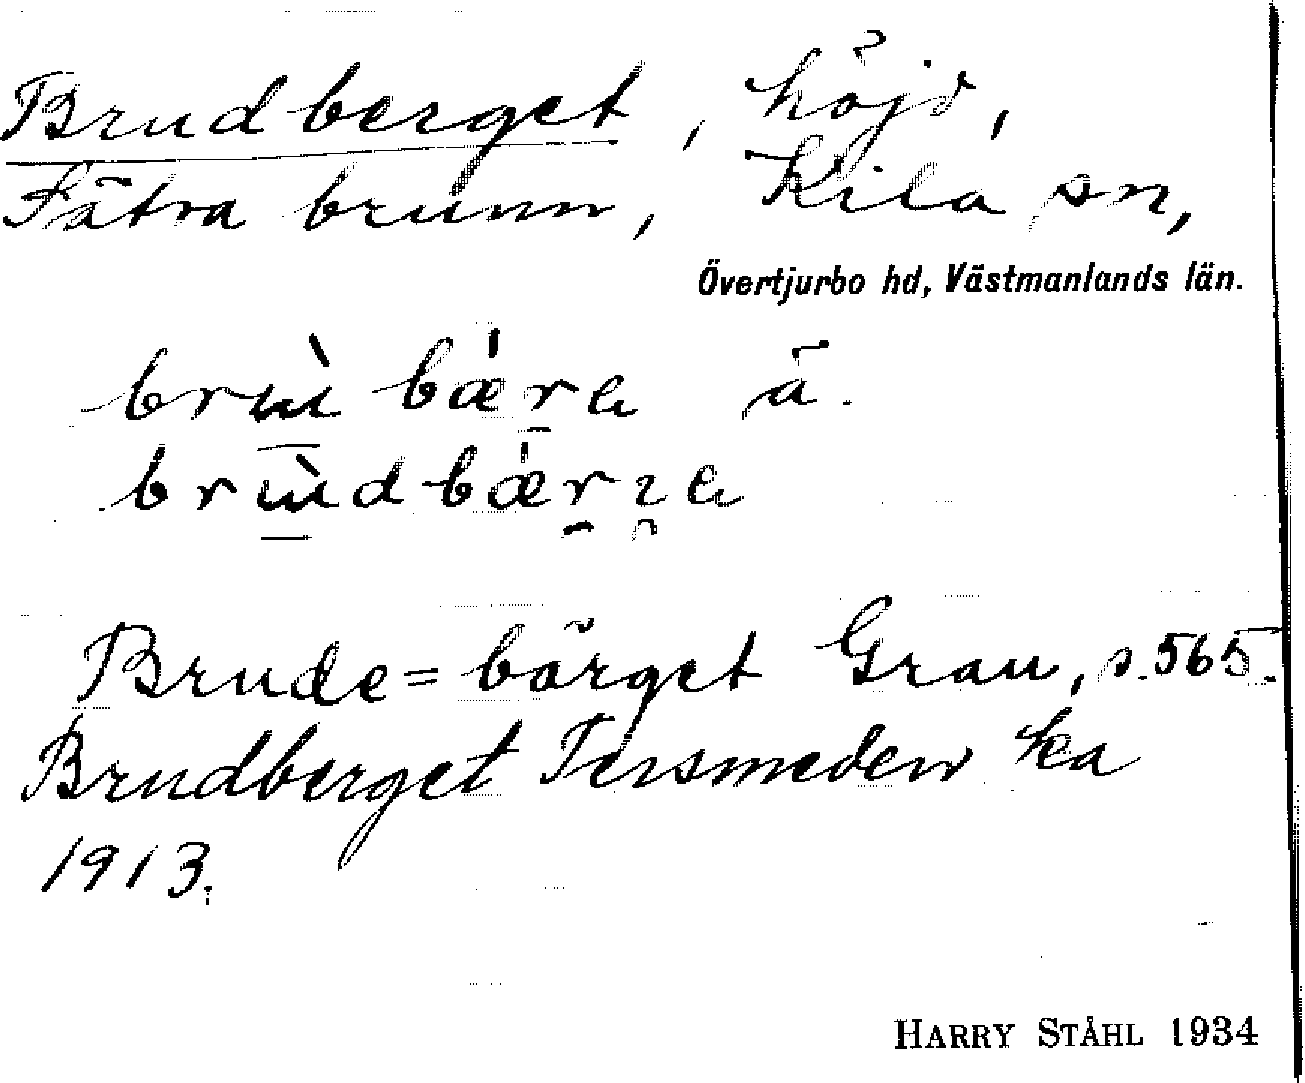 Brudberget, höjd,
Sätra brunn, Kila sn,
Övertjurbo hd, Västmanlands län.
ä.
Brude=bärget Grau, s. 565.
Brudberget Tersmeden ka
1913.
HARRY STÅHL 1934